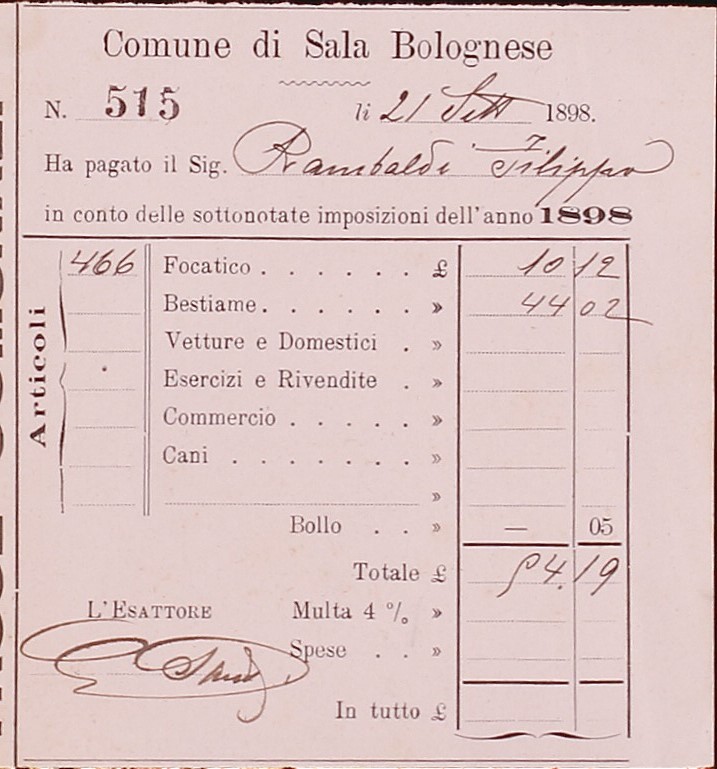 Comune di Sala Bolognese
N. 515 li 21 Sett 1898.
Ha pagato il Sig. Rambaldi Filippo
in conto delle sottonotate imposizioni dell'anno 1898
Articoli
466 Focatico . . . . . . £ 10 12
Bestiame . . . . . . » 44 02
Vetture e Domestici . »
Esercizi e Rivendite . »
Commercio . . . . . »
Cani . . . . . . . »
»
Bollo . . » — 05
Totale £ 54.19
L'ESATTORE Multa 4 % »
Spese . . »
In tutto £